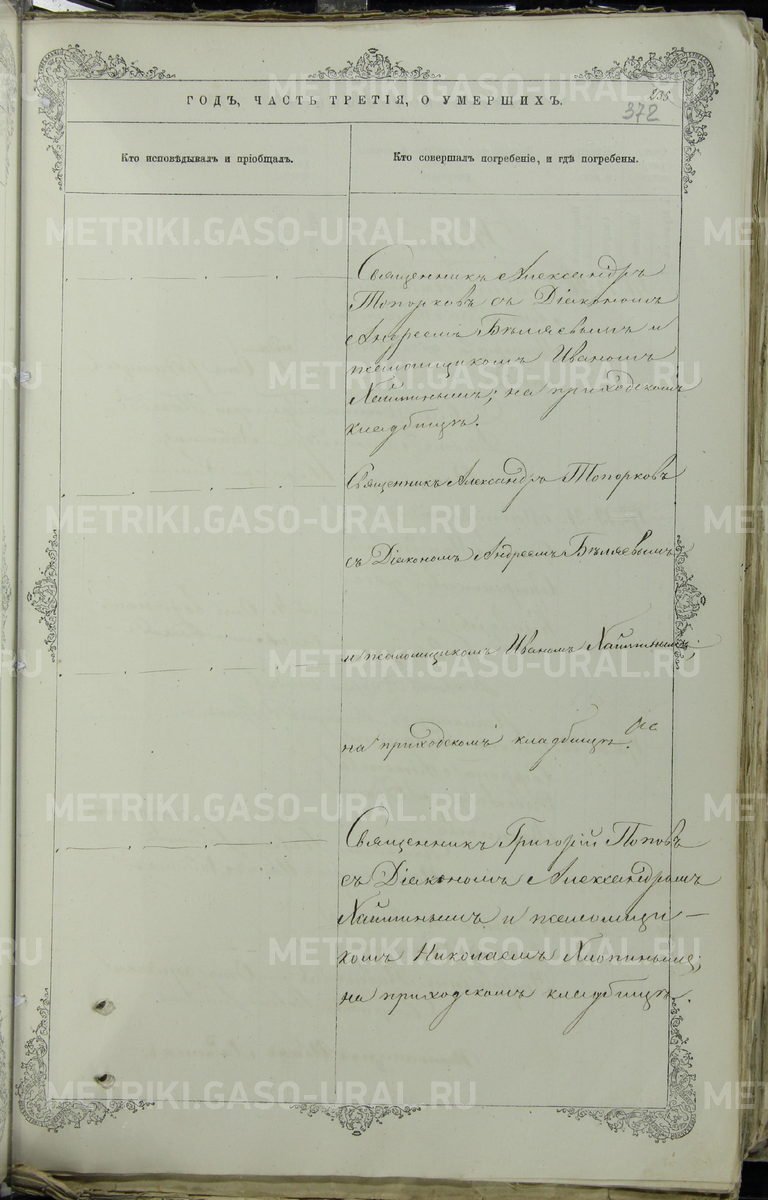 235
372
ГОДЪ, ЧАСТЬ ТРЕТІЯ, О УМЕРШИХЪ.
Кто исповѣдывалъ и пріобщалъ.
Кто совершалъ погребеніе, и гдѣ погребены.
Священникъ Александръ
Топорковъ съ Діакономъ
Андреемъ Бѣляевымъ и
псаломщикомъ Иваномъ
на приходскомъ
кладбищѣ.
Священникъ Александръ Топорковъ
съ Діакономъ Андреемъ Бѣляевымъ
и псаломщикомъ Иваномъ
на приходскомъ кладбищѣ.
Священникъ Григорій Поповъ
съ Діакономъ Александромъ
и псаломщи-
комъ Николаемъ Хлопинымъ;
на приходскомъ кладбищѣ.
METRIKI.GASO-URAL.RU